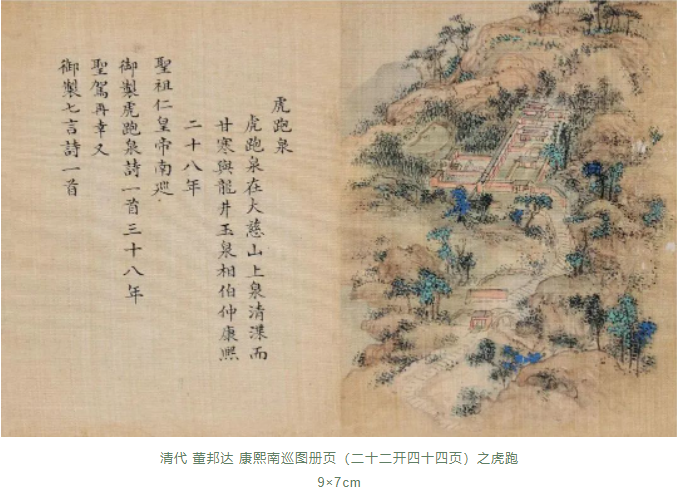 虎跑泉
虎跑泉在大慈山上泉清漯而
甘寒與龍井玉泉相伯仲康熙
二十八年
聖祖仁皇帝南巡
御製虎跑泉詩一首三十八年
聖駕再幸又
御製七言詩一首
清代 董邦达 康熙南巡图册页（二十二开四十四页）之虎跑
9×7cm